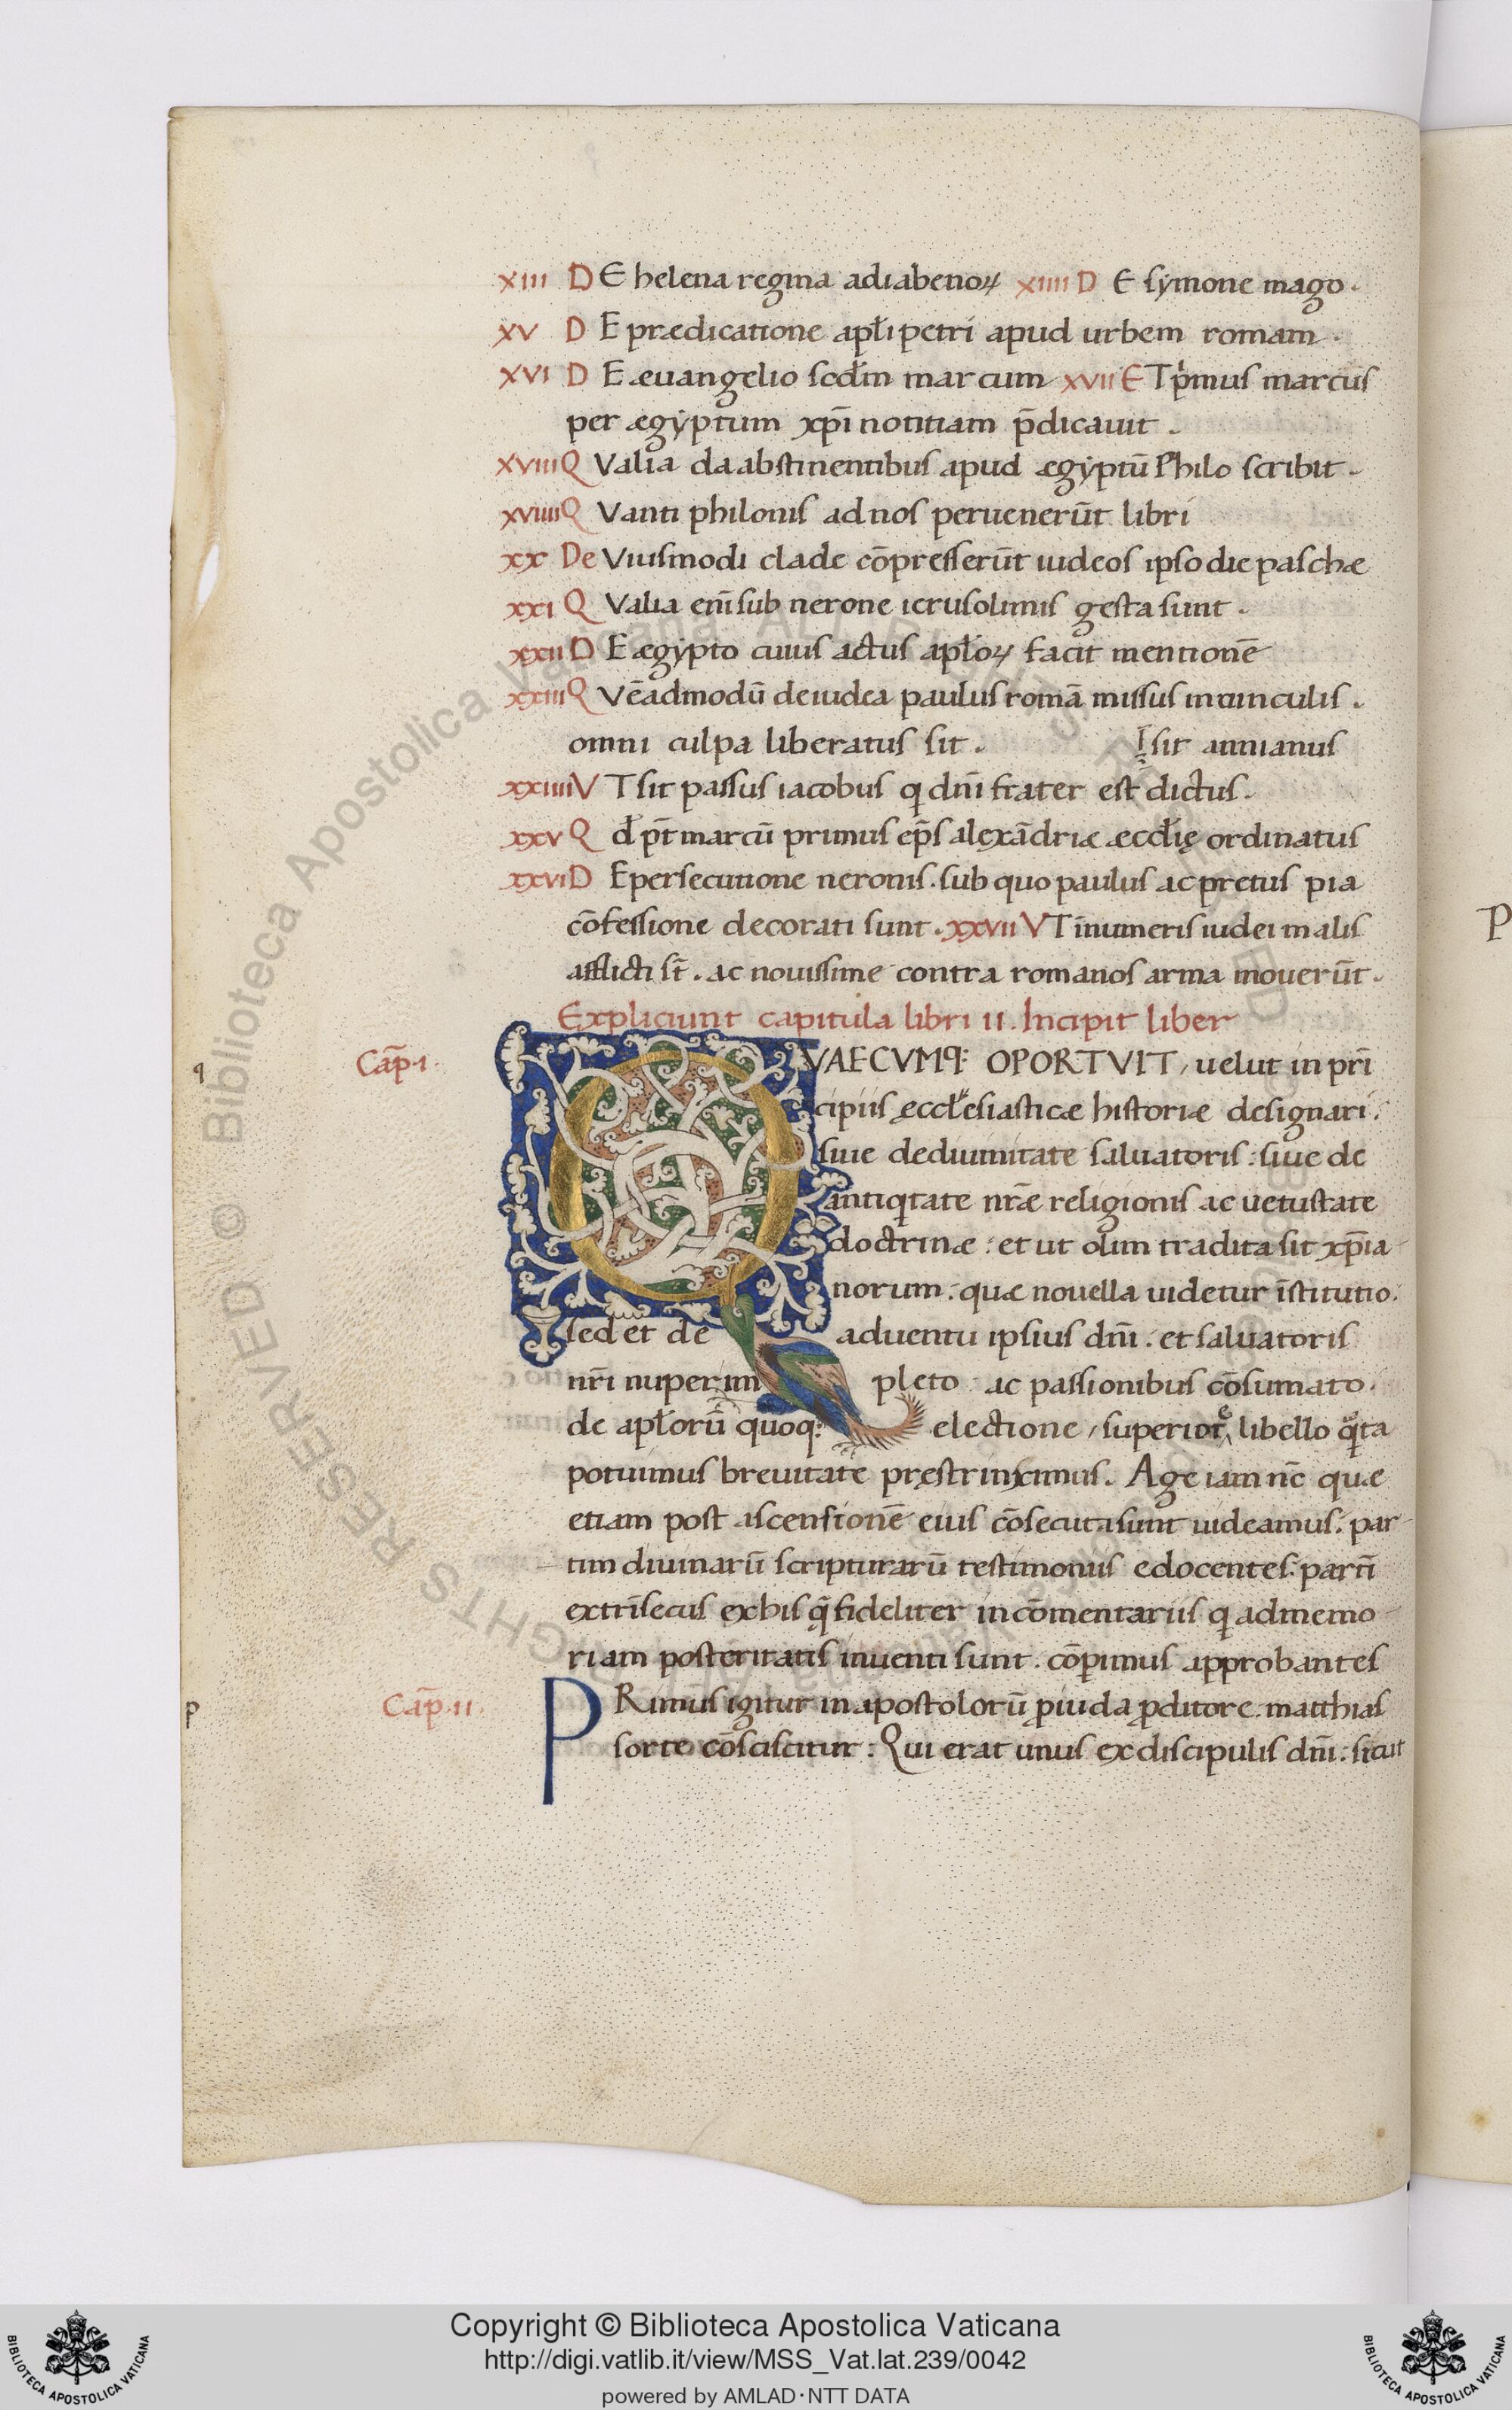 XIII DE helena regina adiabenoꝝ XIIII DE symone mago.
XV DE prædicatione apłi petri apud urbem romam.
XVI DE æuangelio scd̄m marcum XVII ET pͥmus marcus
per ægyptum xp̄i notitiam p̄dicauit.
XVIII Qualia da abstinentibus apud ægyptū Philo scribit.
XVIIII Quanti philonis ad nos peruenerūt libri
XX De Viusmodi clade cōpresserūt iudeos ipso die paschæ
XXI Qualia em̄ sub nerone ierusolimis gesta sunt.
XXII DE ægypto cuius actus apłoꝝ facit mentionē
XXIII Quēadmodū de iudea paulus romā missus in uinculis.
omni culpa liberatus sit. sit annianus
XXIIII VT sit passus iacobus q dn̄i frater est dictus.
XXV Q đ pt̄ marcū primus ep̄s alexādriæ æccłię ordinatus
XXVI DE persecutione neronis. sub quo paulus ac pretus pia
cōfessione decorati sunt. XXVII VT īnumeris iudei malis
afflicti st̄. ac nouissime contra romanos arma mouerūt.
Expliciunt capitula libri II. Incipit liber
q Cap̄.I. QVAECVMQ: OPORTVIT, uelut in prī
cipiis ęccłesiasticæ historiæ designari:
siue de diuinitate saluatoris: siue de
antiqͥtate nr̄æ religionis ac uetustate
doctrinæ: et ut olim tradita sit xp̄ia
norum: quæ nouella uidetur īstitutio.
sed et de aduentu ipsius dn̄i: et saluatoris
nr̄i nuper impleto: ac passionibus cōsumato.
de apłorū quoq: electione, superiore libello qͣta
potuimus breuitate pręstrinximus. Age iam nc̄ quæ
etiam post ascensionē eius cōsecuta sunt uideamus. par
tim diuinarū scripturarū testimoniis edocentes: partī
extrīsecus ex his q̄ fideliter in cōmentariis q ad memo
riam posteritatis inuenti sunt. cōperimus approbantes
p Cap̄.II. PRimus igitur in apostolorū ꝓ iuda ꝓditore. matthias
sorte cōsciscitur: Qui erat unus ex discipulis dn̄i: sicut
P
Copyright © Biblioteca Apostolica Vaticana
http://digi.vatlib.it/view/MSS_Vat.lat.239/0042
powered by AMLAD·NTT DATA
BIBLIOTECA APOSTOLICA VATICANA
BIBLIOTECA APOSTOLICA VATICANA